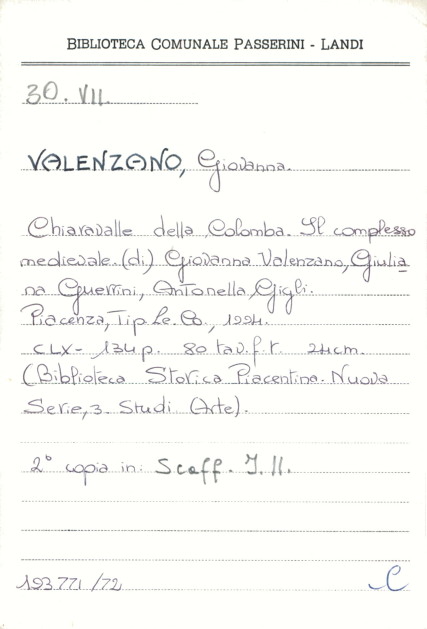 BIBLIOTECA COMUNALE PASSERINI - LANDI
30. VII.
VALENZANO, Giovanna.
Chiaravalle della Colomba. Il complesso
medievale. (di) Giovanna Valenzano, Giulia
na Guerrini, Antonella Gigli.
Piacenza, Tip. Le. Co., 1994.
CLX- 134 p. 80 tav. f. t. 24 cm.
(Biblioteca Storica Piacentina. Nuova
Serie, 3. Studi Arte).
2° copia in: Scaff. J. 11.
193771/72
C